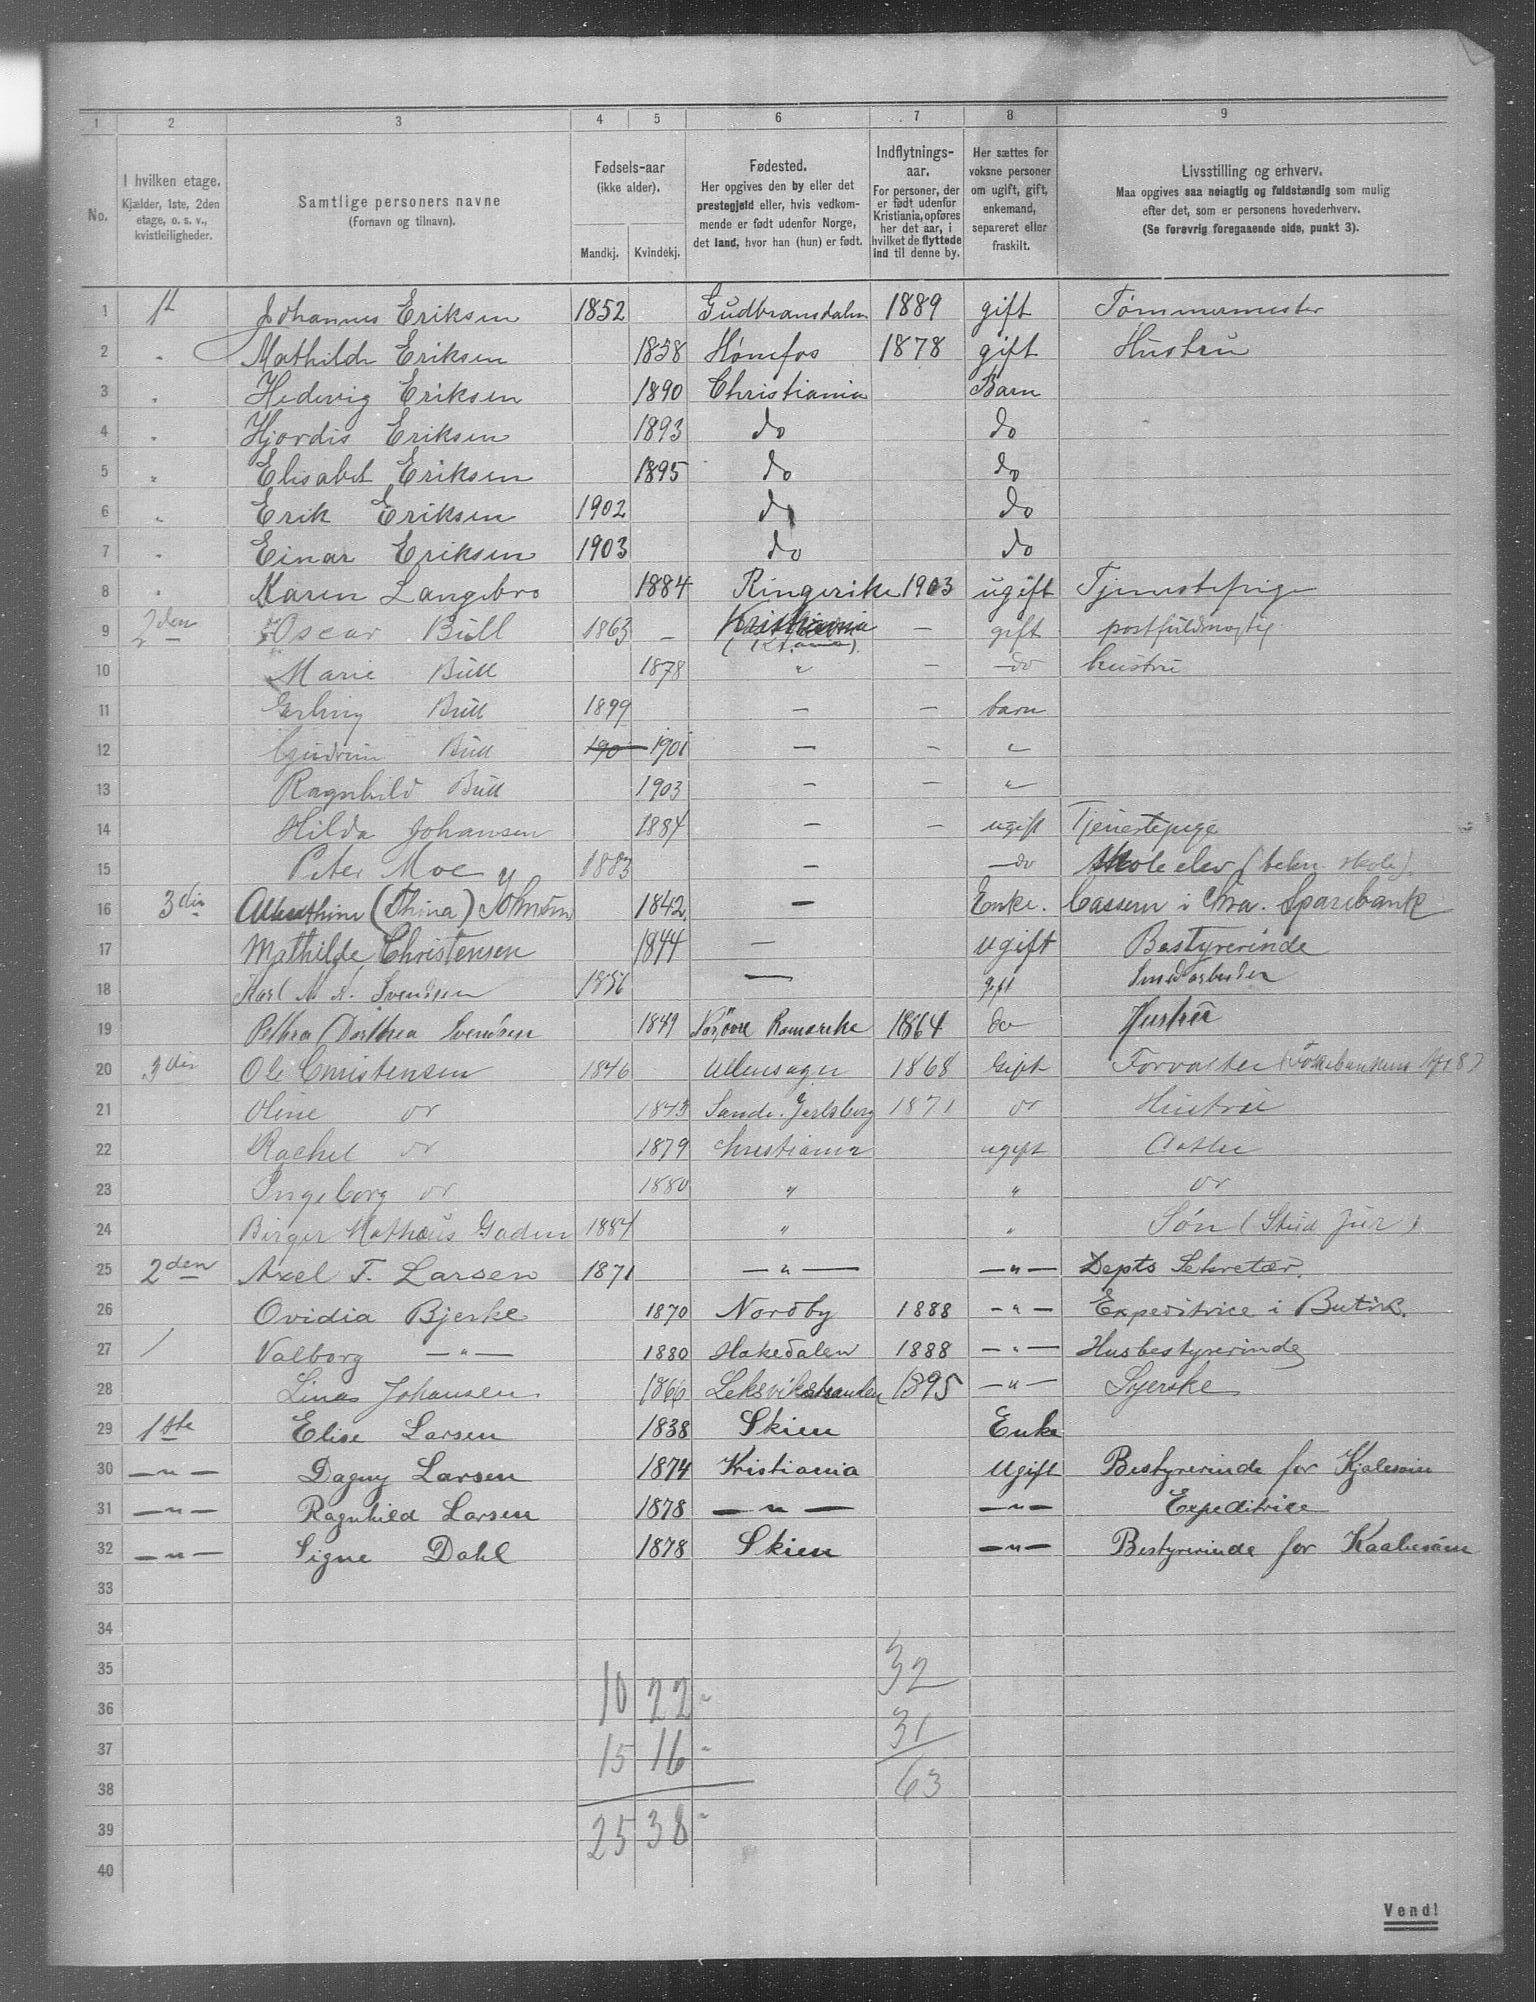 1 2 3 4 5 6 7 8 9
No.
I hvilken etage.
Kjælder, 1ste, 2den
etage, o. s. v.,
kvistleiligheder.
Samtlige personers navne
(Fornavn og tilnavn).
Fødsels-aar
(ikke alder).
Mandkj. Kvindekj.
Fødested.
Her opgives den by eller det
prestegjeld eller, hvis vedkom-
mende er født udenfor Norge,
det land, hvor han (hun) er født.
Indflytnings-
aar.
For personer, der
er født udenfor
Kristiania, opføres
her det aar, i
hvilket de flyttede
ind til denne by.
Her sættes for
voksne personer
om ugift, gift,
enkemand,
separeret eller
fraskilt.
Livsstilling og erhverv.
Maa opgives saa nøiagtig og fuldstændig som mulig
efter det, som er personens hovederhverv.
(Se forøvrig foregaaende side, punkt 3).
1 1st Johannes Eriksen 1852 Gudbransdalen 1889 gift Tømmermester
2 " Mathilde Eriksen 1858 Hønefos 1878 gift Hustru
3 " Hedevig Eriksen 1890 Christiania Barn
4 " Hjordis Eriksen 1893 do do
5 " Elisabet Eriksen 1895 do do
6 " Erik Eriksen 1902 do do
7 " Einar Eriksen 1903 do do
8 " Karen Langebro 1884 Ringerike 1903 ugift Tjenestepige
9 2den Oscar Bull 1863 — Kristiania — gift postfuldmægtig
(Kr.ania)
10 Marie Bull 1878 " — do hustru
11 Erling Bull 1899 — — barn
12 Gudrun Bull 190 1901 — — "
13 Ragnhild Bull 1903 — — "
14 Hilda Johansen 1884 — — ugift Tjenestepige
15 Peter Moe 1883 — — do skole elev (tekn. skole).
16 3die (Thina) Johnsen 1842. — Enke. Casserer i Chra. Sparebank
17 Mathilde Christensen 1844 — ugift Bestyrerinde
18 Karl M. A. Svendsen 1856 — gift Smedarbeider
19 Petra Dorthea Svendsen 1849 Romerike 1864 do Hustru
20 3die Ole Christensen 1846 Ullensager 1868 Gift Forvalter
21 Oline do 1843 Sande. Jarlsberg 1871 do Hustru
22 Rachel do 1879 Christiania ugift Datter
23 Ingeborg do 1880 " " do
24 Birger Mathæus Gaden 1884 " " Søn (Stud Jur)
25 2den Axel F. Larsen 1871 — " — — " — Depts Sekretær.
26 Ovidia Bjerke 1870 Nordby 1888 — " — Expeditrice i Butik.
27 / Valborg — " — 1880 Hakedalen 1888 — " — Husbestyrerinde
28 Lina Johansen. 1866 Leksvikstranden 1895 — " — Syerske
29 1ste Elise Larsen 1838 Skien Enke
30 — " — Dagny Larsen 1874 Kristiania Ugift Bestyrerinde for Kjolesøm
31 — " — Ragnhild Larsen 1878 — " — — " — Expeditrice
32 — " — Signe Dahl 1878 Skien — " — Bestyrerinde for Kaabesøm
33
34
35 32
36 10 22 -
37 15 16 - 31
38 63
39 25 38 -
40
Vend!